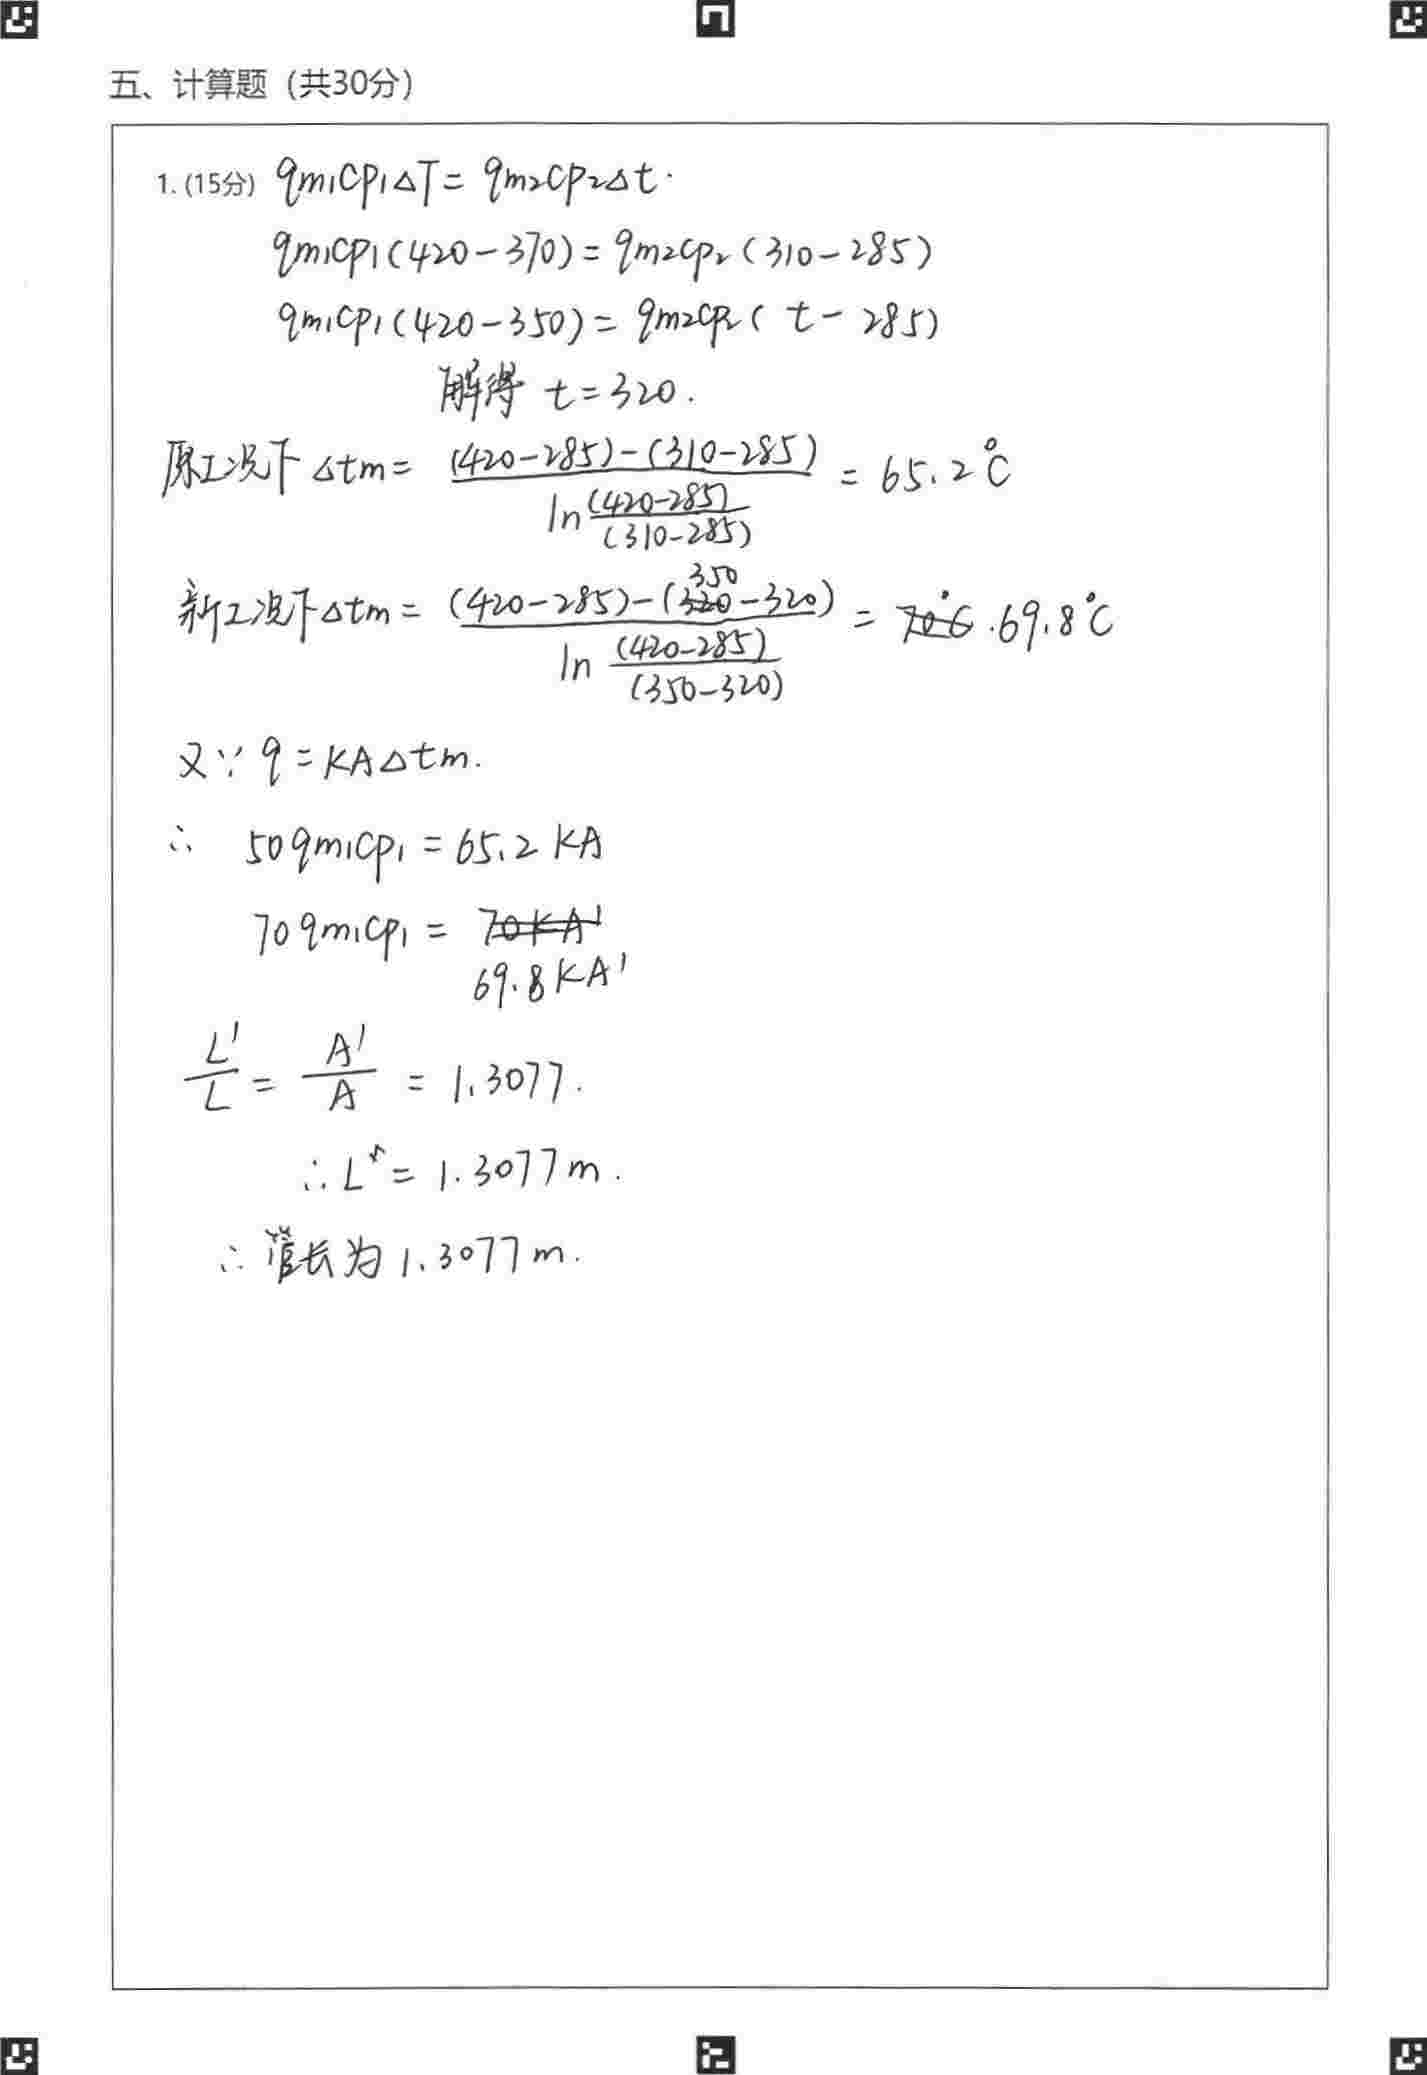 五、计算题（共30分）
1. (15分) qm₁Cp₁△T = qm₂Cp₂△t.
qm₁Cp₁(420-370) = qm₂Cp₂(310-285)
qm₁Cp₁(420-350) = qm₂Cp₂( t - 285)
解得 t=320.
原工况下 △tm = ((420-285)-(310-285)) / (ln (420-285)/(310-285)) = 65.2°C
新工况下 △tm = ((420-285)-(350-320)) / (ln (420-285)/(350-320)) = 69.8°C
又∵ q = KA△tm.
∴ 50qm₁Cp₁ = 65.2 KA
70qm₁Cp₁ = 70KA'
69.8KA'
L'/L = A'/A = 1.3077.
∴ L' = 1.3077m.
∴ 管长为 1.3077m.